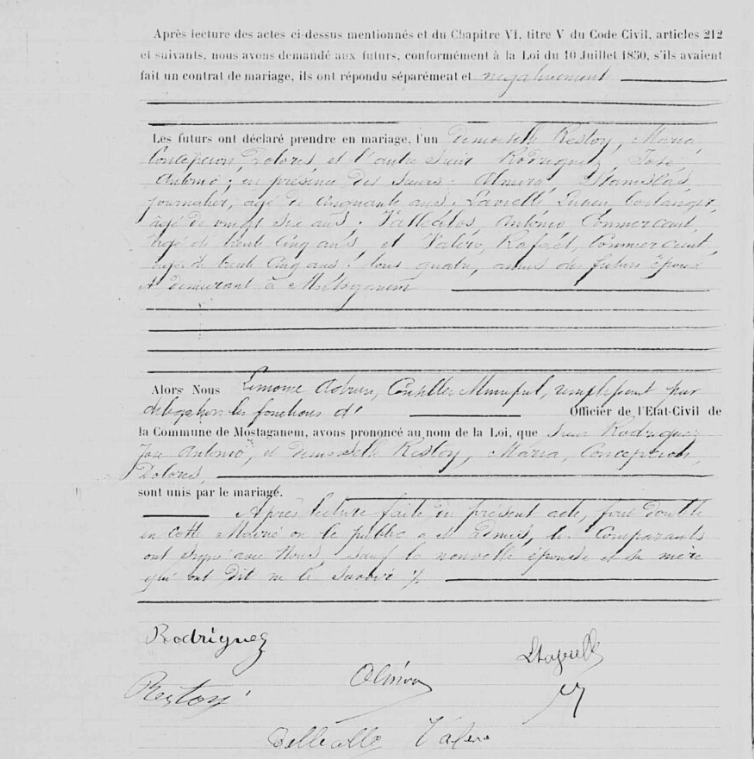 Après lecture des actes ci-dessus mentionnés et du Chapitre VI, titre V du Code Civil, articles 212
et suivants, nous avons demandé aux futurs, conformément à la Loi du 10 Juillet 1850, s'ils avaient
fait un contrat de mariage, ils ont répondu séparément et négativement
Les futurs ont déclaré prendre en mariage, l'un Demoiselle Restoy, Maria,
Concepcion, Dolores et l'autre sieur Rodriguez, José
Antonio; en présence des sieurs: Almira, Stanislas,
journalier, âgé de cinquante ans; Lucien, boulanger,
âgé de vingt six ans; Antonio, Commerçant,
âgé de trente cinq ans, et Valero, Rafaël, commerçant,
âgé de trente cinq ans; tous quatre, amis des futurs époux
et demeurant à Mostaganem
Alors Nous Adrien, Conseiller Municipal, remplissant par
délégation les fonctions d' Officier de l'Etat-Civil de
la Commune de Mostaganem, avons prononcé au nom de la Loi, que sieur Rodriguez,
José Antonio, et demoiselle Restoy, Maria, Concepcion,
Dolores,
sont unis par le mariage.
Après lecture faite du présent acte, fait double
en cette Mairie où le public a été admis, les Comparants
ont signé avec Nous, sauf la nouvelle épouse et sa mère
qui ont dit ne le savoir ./.
Rodriguez
Restoy
Valero